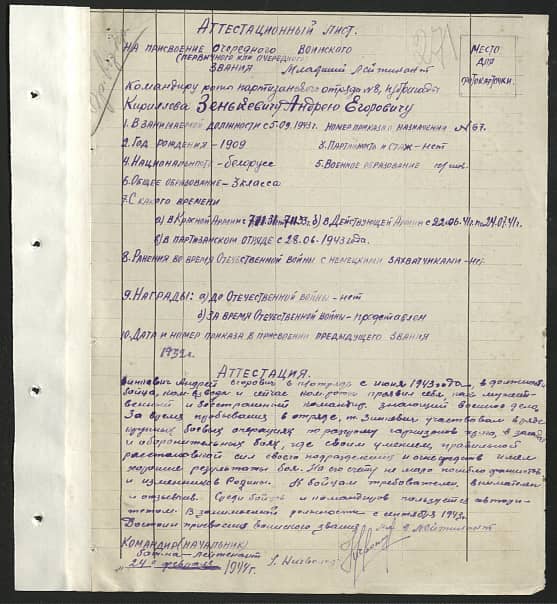 271
Аттестационный лист.
на присвоение очередного воинского
(первичного или очередного)
звания Младший Лейтенант
Место
для
фотокарточки.
Командиру роты партизанского отряда №8, бригады
Кириллова Зенькевичу Андрею Егоровичу
1. В занимаемой должности с 5.09.1943г. номер приказа о назначения №67.
2. Год рождения - 1909 3. Партийность и стаж - нет
4. Национальность - белорусс 5. Военное образование
6. Общее образование - 3 класса
7. С какого времени
а) в Красной Армии с б) в Действующей Армии с 22.06.41г. по 24.07.41г.
в) в партизанском отряде с 28.06.1943 года.
8. Ранения во время Отечественной войны с немецкими захватчиками - нет
9. Награды: а) до Отечественной войны - нет
б) за время Отечественной войны - представлен
10. Дата и номер приказа в присвоении предыдущего звания
1932г.
Аттестация.
Андрей Егорович в п-отряде с июня 1943 года, в должности
бойца, ком. взвода и сейчас ком. роты проявил себя, как мужест-
венный и всесторонний командир, знающий военное дело.
За время пребывания в отряде, т. Зинкевич участвовал в
крупных боевых операциях по разгрому гарнизонов
и оборонительных боях, где своим умением, правильной
расстановкой сил своего подразделения и огнесредств имел
хорошие результаты боя. На его счету не мало фашистов
и изменников Родины. К бойцам требователен, внимателен
и отзывчив. Среди бойцов и командиров пользуется автори-
тетом. В занимаемой должности с сентября 1943г.
Достоин присвоения воинского звания мл. лейтенант
Командир (начальник)
бат-на - лейтенант
"24" февраля 1944г.